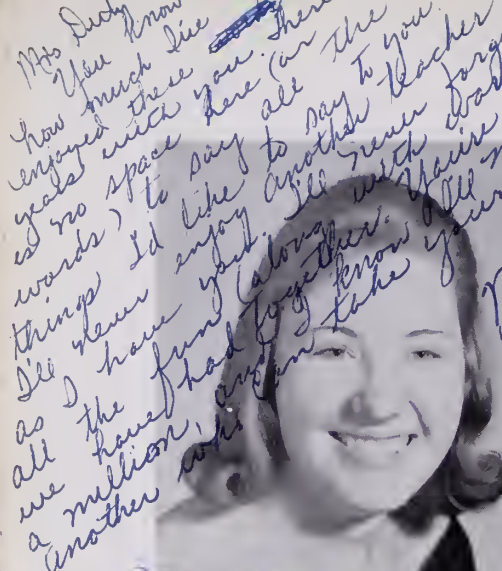 Mrs Dudy
You know
how much I've
enjoyed these
years with you. There
is no space here (or the
words) to say all the
things I'd like to say to you.
I'll never enjoy another teacher
as I have you. I'll never forge
all the fun (along with wor
we have had together. You're
a million, and I know I'll n
another who can take your